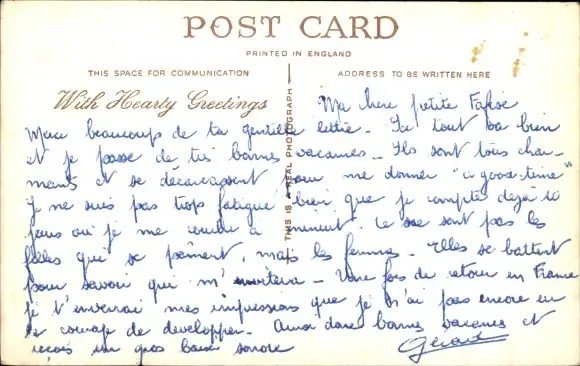 POST CARD
PRINTED IN ENGLAND
THIS SPACE FOR COMMUNICATION
ADDRESS TO BE WRITTEN HERE
With Hearty Greetings
THIS IS A REAL PHOTOGRAPH
Ma chere petite
Merci beaucoup de ta gentille lettre - Ici tout va bien
et je passe de très bonnes vacances - Ils sont tous char-
mants et se décarcassent pour me donner "a good time"
Je ne suis pas trop fatigué bien que je compte déjà 10
jours où je me couche à minuit. Ce ne sont pas les
filles qui se pâment, mais les femmes - Elles se battent
pour savoir qui m'invitera - Une fois de retour en France
je t'enverrai mes impressions que je n'ai pas encore eu
le courage de développer. Amuse bonnes vacances et
reçois un gros baiser sonore
Gérard